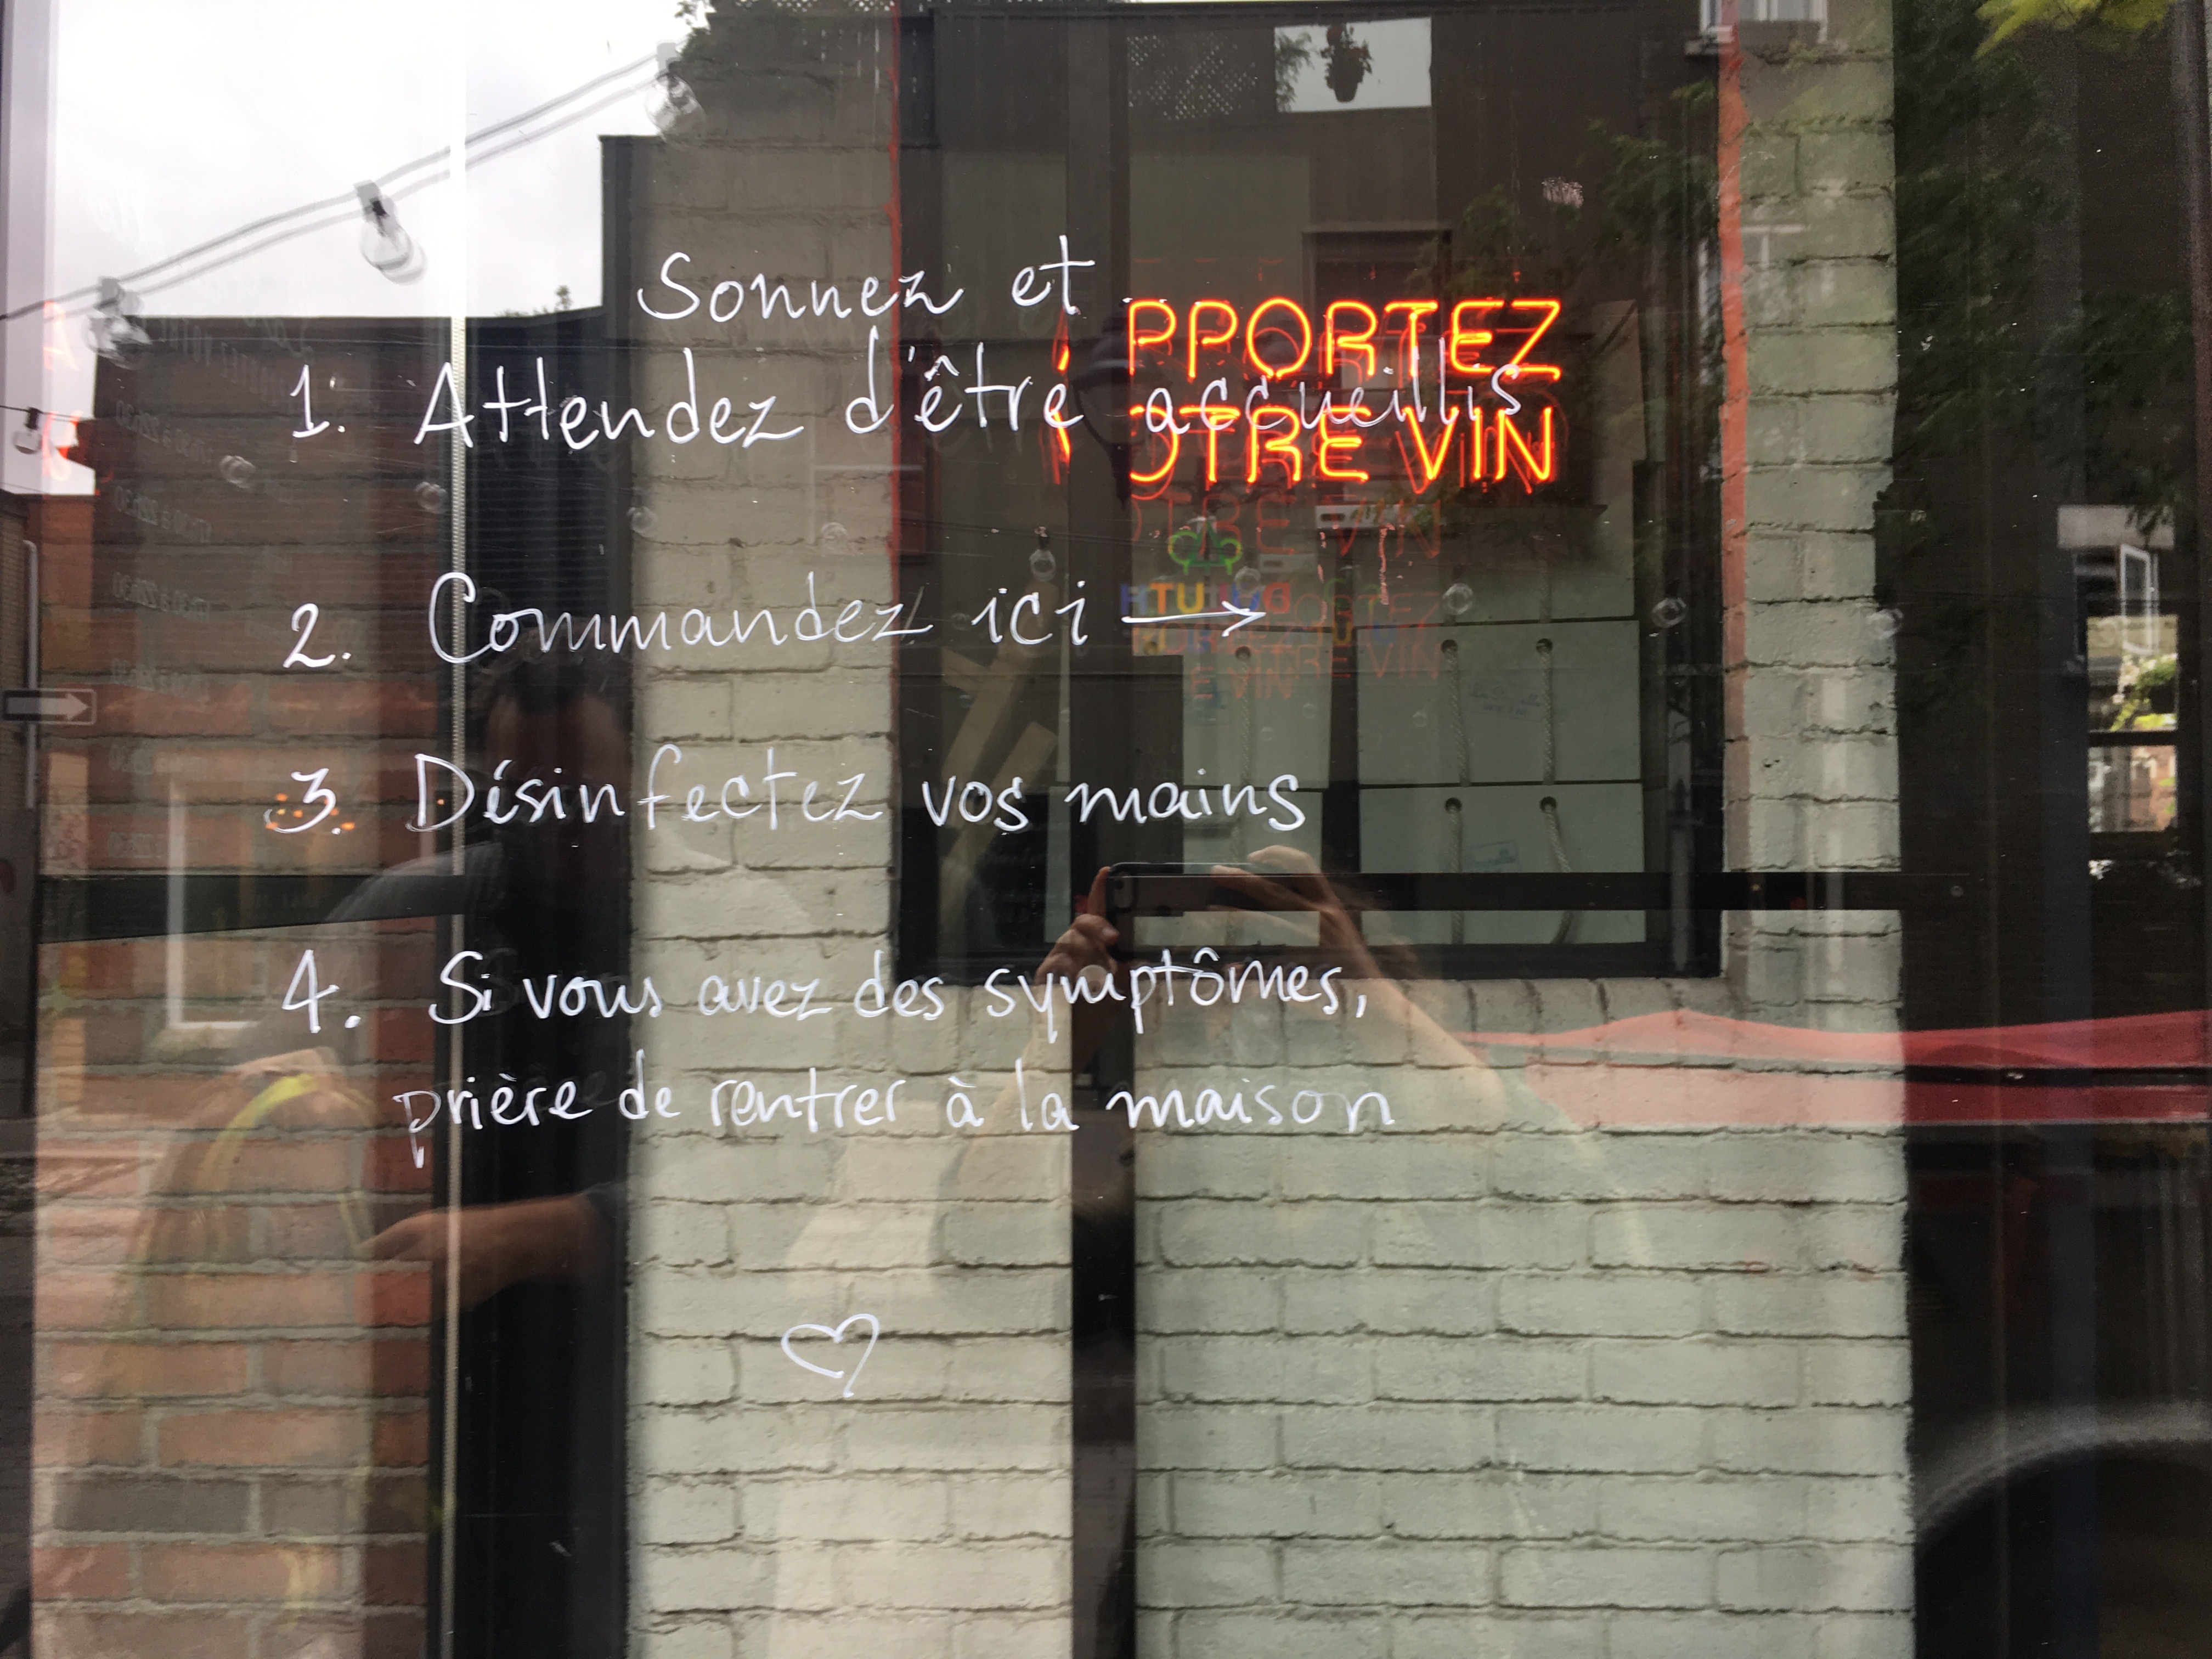 Sonnez et
PPORTEZ
1. Attendez d'être accueillis
OTRE VIN
2. Commandez ici →
3. Désinfectez vos mains
4. Si vous avez des symptômes,
prière de rentrer à la maison